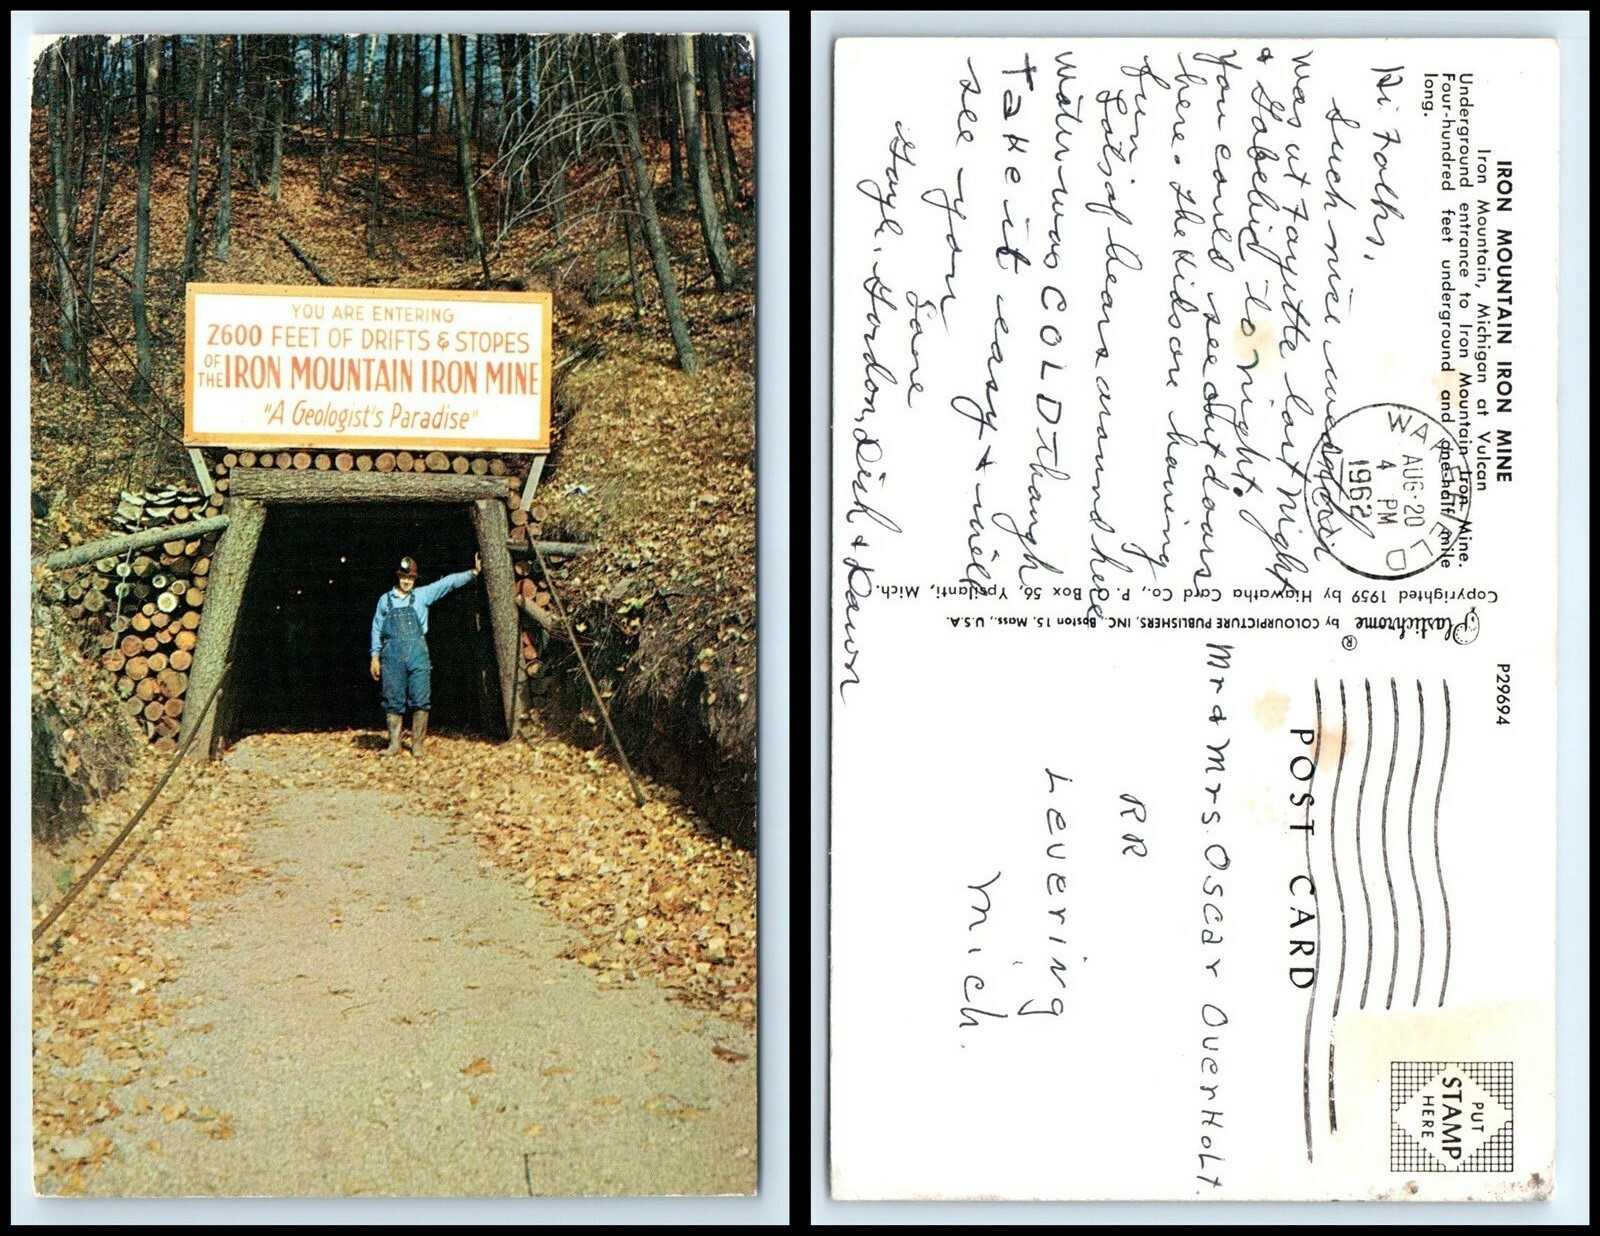 YOU ARE ENTERING
2600 FEET OF DRIFTS & STOPES
OF THE IRON MOUNTAIN IRON MINE
"A Geologist's Paradise"
IRON MOUNTAIN IRON MINE
Iron Mountain, Michigan at Vulcan
Underground entrance to Iron Mountain Iron Mine.
Four-hundred feet underground and one-half mile
long.
Hi Folks,
Such nice weather
was at Fayette last night
&
to night.
You could see out doors
here. The kids are having
fun.
Lots of bears around here
Water was COLD though
Take it easy & will
see you
Gayle, Gordon, Dick & Dawn
AUG 20
4 PM
1962
Copyrighted 1959 by Hiawatha Card Co., P. O. Box 56, Ypsilanti, Mich.
Plastichrome ® by COLOURPICTURE PUBLISHERS, INC., Boston 15, Mass., U.S.A.
P29694
POST CARD
PUT
STAMP
HERE
Mr & Mrs. Oscar Overholt.
RR
Levering
Mich.